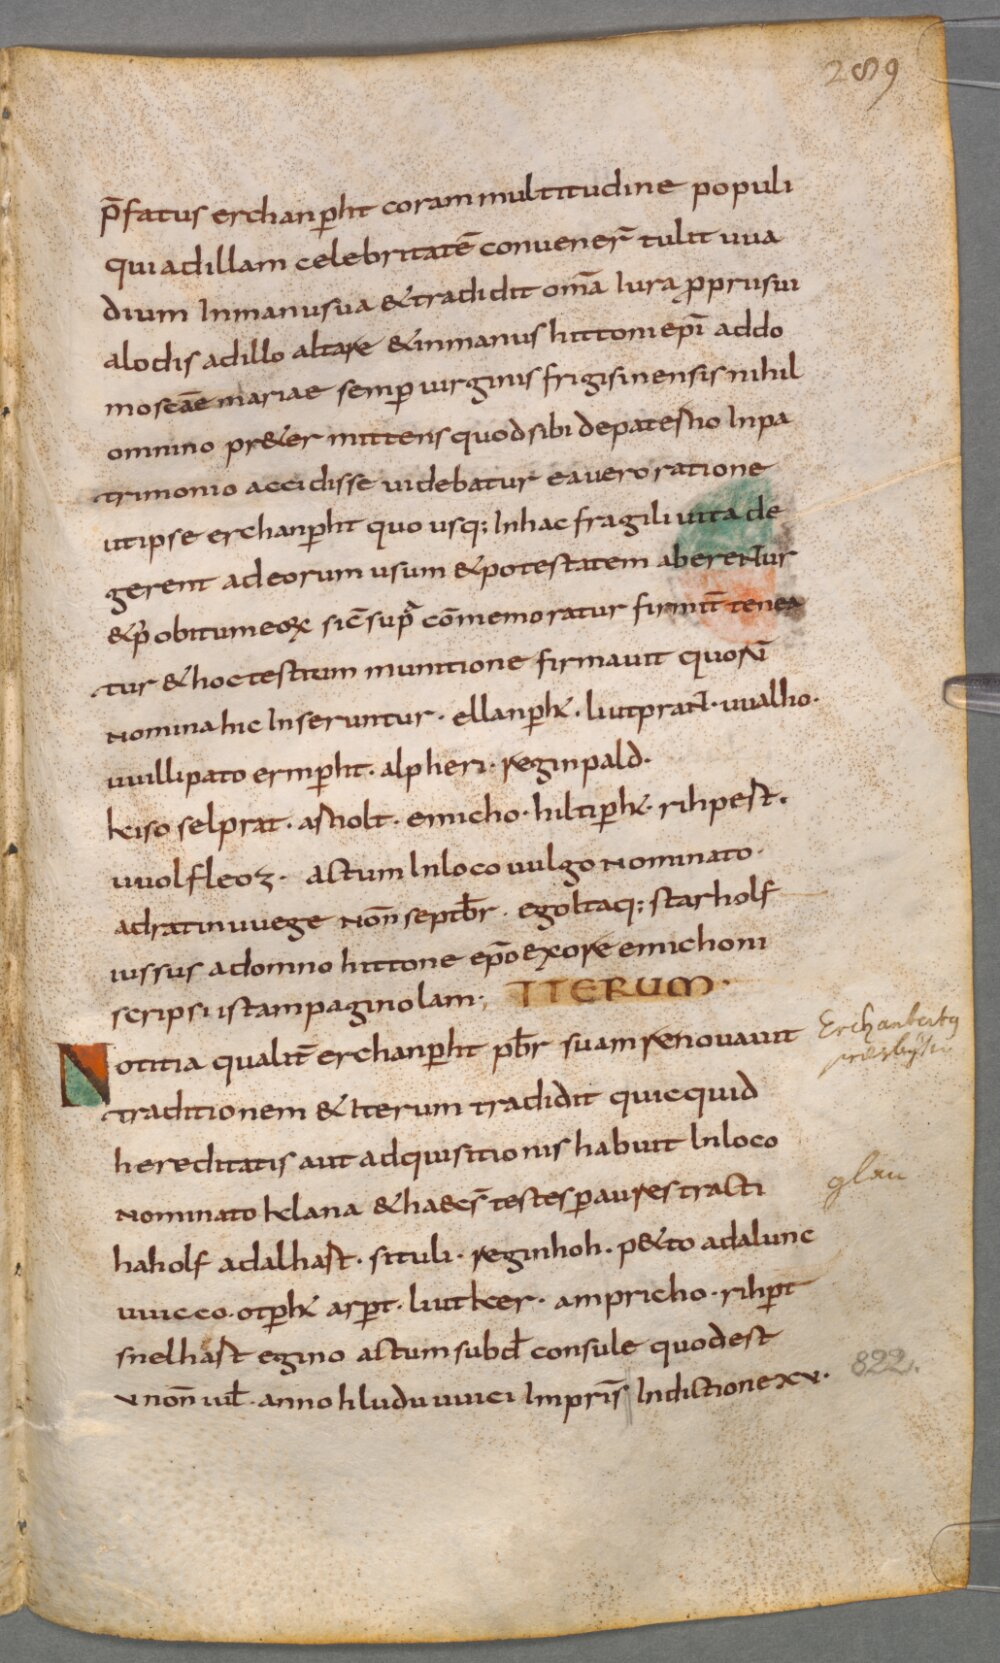 289
p̄fatus erchanp̄ht coram multitudine populi
qui ad illam celebritatē conuener̄ tulit uua
dium In manu sua & tradidit om̄a Iura ꝓprii sui
alodis ad illo altare & in manus hittoni epī ad do
mo sc̄ae mariae semꝑ uirginis frigisinensis nihil
omnino pr&er mittens quod sibi depatestio In pa
trimonio accidisse uidebatur ea uero ratione
ut ipse erchanp̄ht quo usq; In hac fragili uita de
gerent ad eorum usum & potestatem aberentur
& p̄ obitum eoꝝ sic̄ supᷓ cōmemoratur firmit̄ tenea
tur & hoc testium munitione firmauit quoꝝ
nomina hic Inseruntur. ellanp̄ht. liutprant. uualho.
uuillipato ermp̄ht. alpheri. reginpald.
kiso selprat. astolt. emicho. hiltip̄ht. rihpest.
uuolfleoz. actum In loco uulgo nominato.
ad ratinuuege non̄ septb̄r. ego ltaq; starholf
iussus a domno hittone ep̄o ex ore emichoni
scripsi istam paginolam; ITERUM.
Notitia qualit̄ erchanp̄ht pb̄r suam renouauit
traditionem & Iterum tradidit quicquid
hereditatis aut adquisitionis habuit In loco
nominato klana & hae c̄s testes ꝑ aures tracti
haholf adalhast. situli. reginhoh. p&to adalunc
uuicco. otp̄ht arp̄t. liutker. ampricho. rihp̄t
snelhast egino actum sub d̄ consule quod est
v non̄ iul̄. anno hludu uuici Impr̄is Indictione xv.
Erchanbertq
presbyter
glan
822.